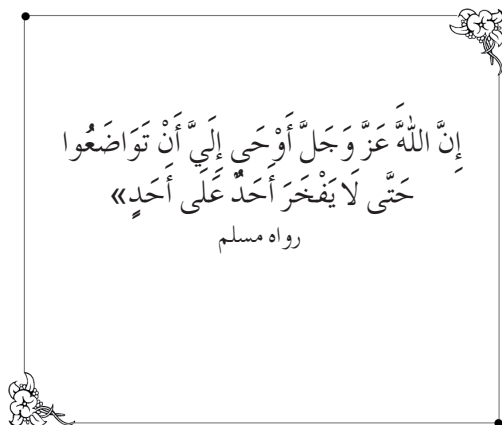 إِنَّ اللهََّ عَزَّ وَجَلَّ أَوْحَى إِلَيَّ أَنْ تَوَاضَعُوا
حَتَّى لَا يَفْخَرَ أَحَدٌ عَلَى أَحَدٍ»
رواه مسلم